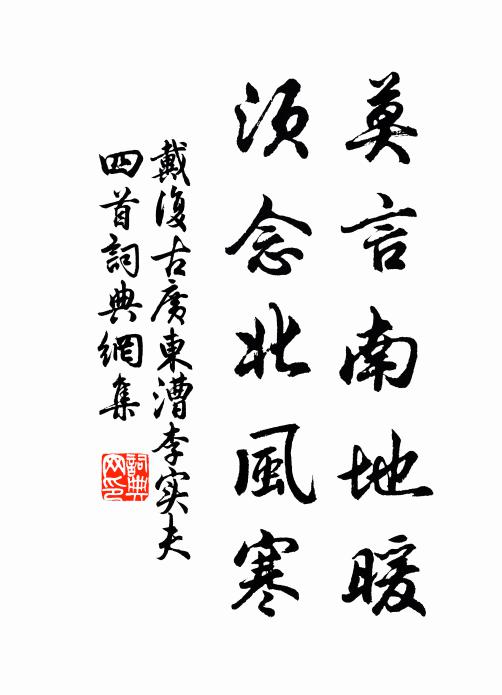 莫言南地暖
須念北風寒
戴復古廣東漕李实夫
四首詞典網集
詞典网印